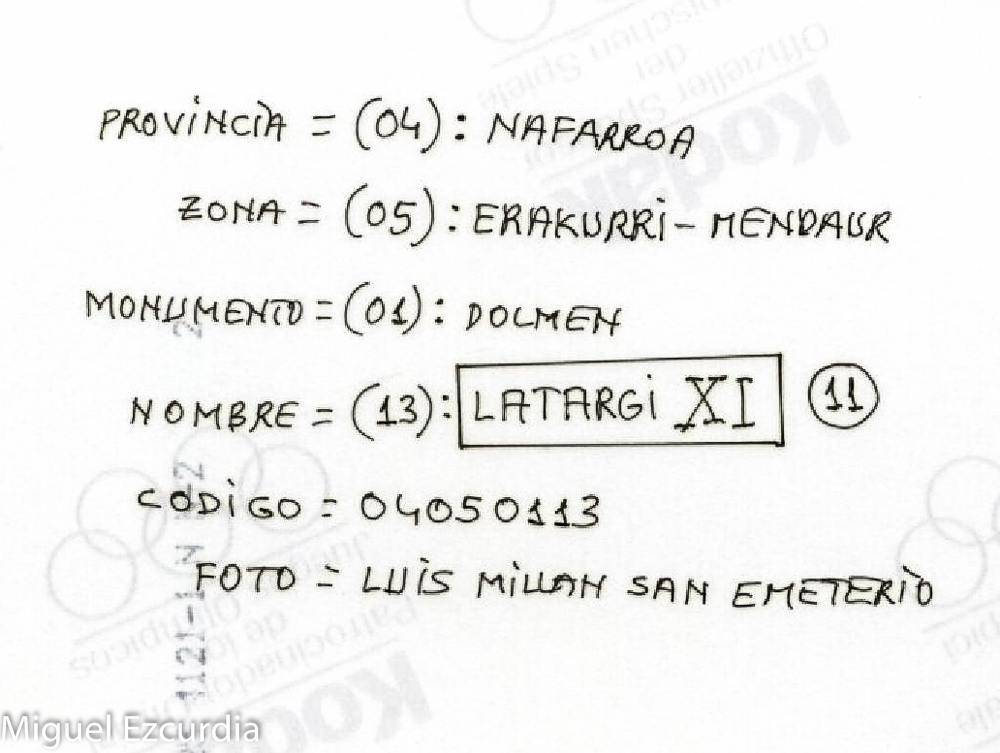 PROVINCIA = (04) : NAFARROA
ZONA = (05) : ERAKURRI - MENDAUR
MONUMENTO = (01) : DOLMEN
NOMBRE = (13) : LATARGI XI 11
CODIGO = 04050113
FOTO = LUIS MILLAN SAN EMETERIO
Offizieller Sponsor
der
Olympischen Spiele
Kodak
Patrocinador
de los
Juegos Olímpicos
Kodak
Miguel Ezcurdia